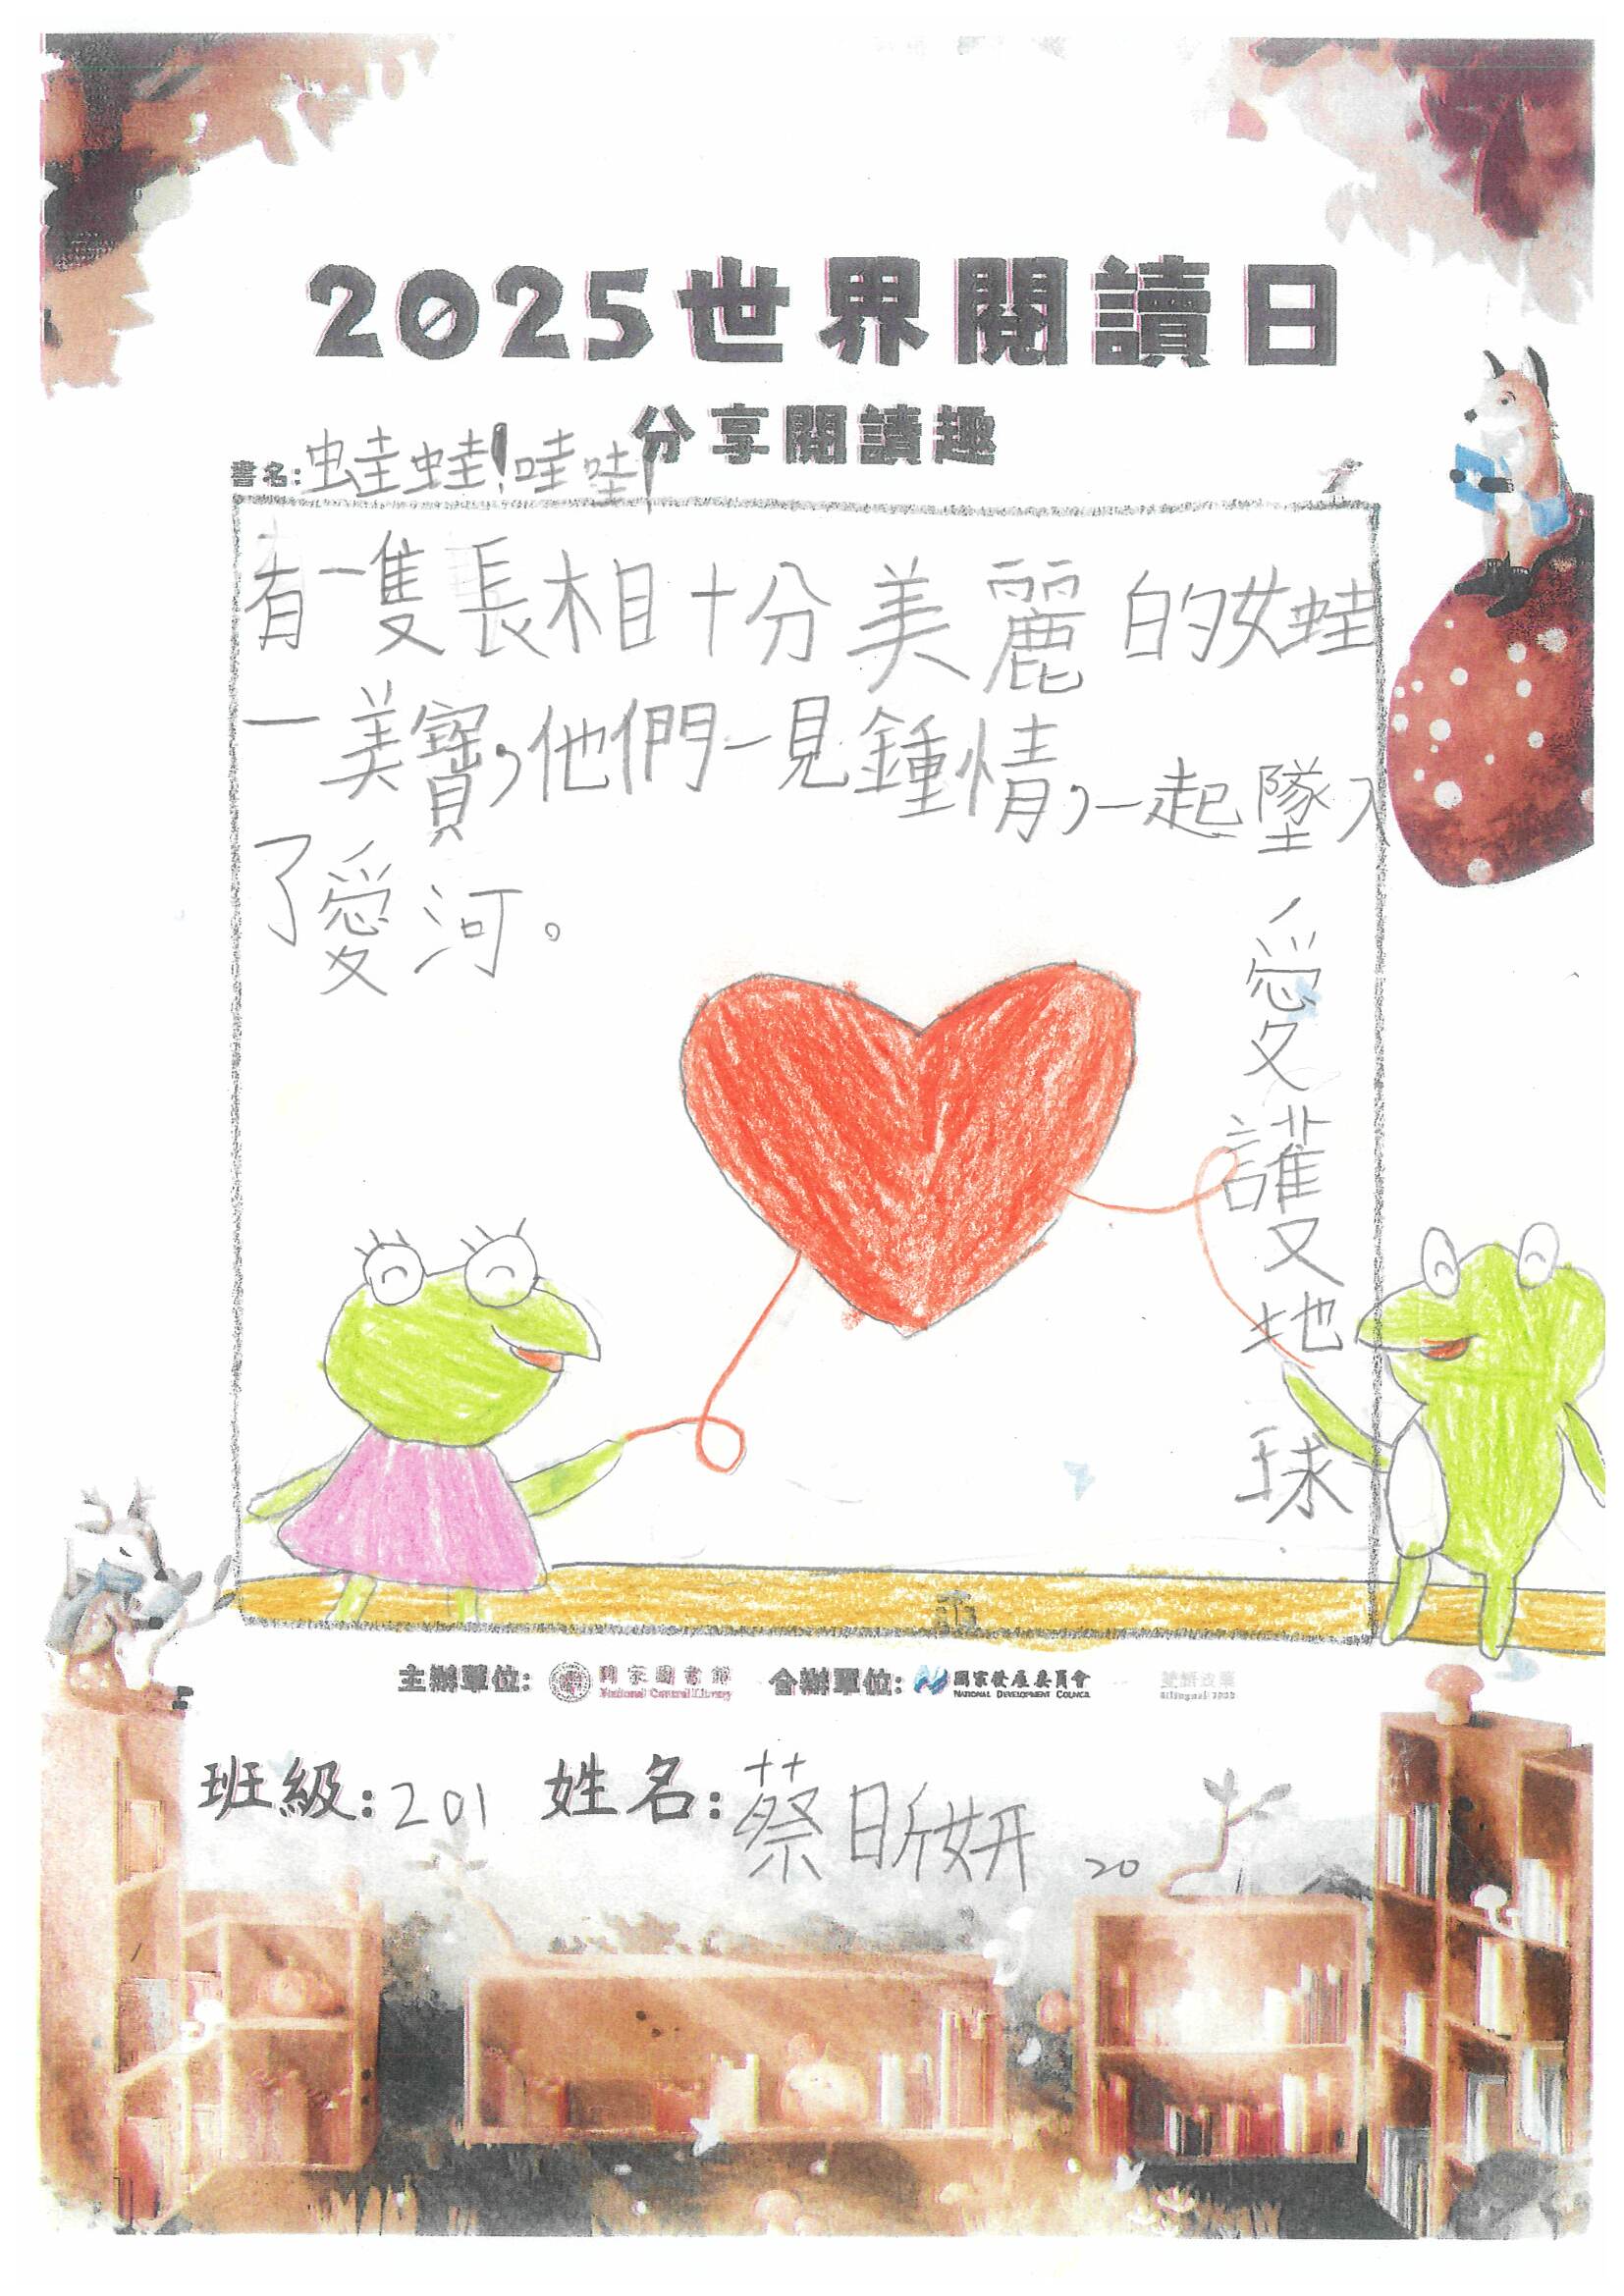 2025世界閱讀日
分享閱讀趣
書名:蛙蛙!哇哇!
有一隻長相十分美麗的女蛙
一美寶,他們一見鍾情,一起墜入
了愛河。
愛護地球
主辦單位: 國家圖書館 National Central Library 合辦單位: 國家發展委員會 NATIONAL DEVELOPMENT COUNCIL 雙語政策 Bilingual 2030
班級:201 姓名:蔡昕妍 20